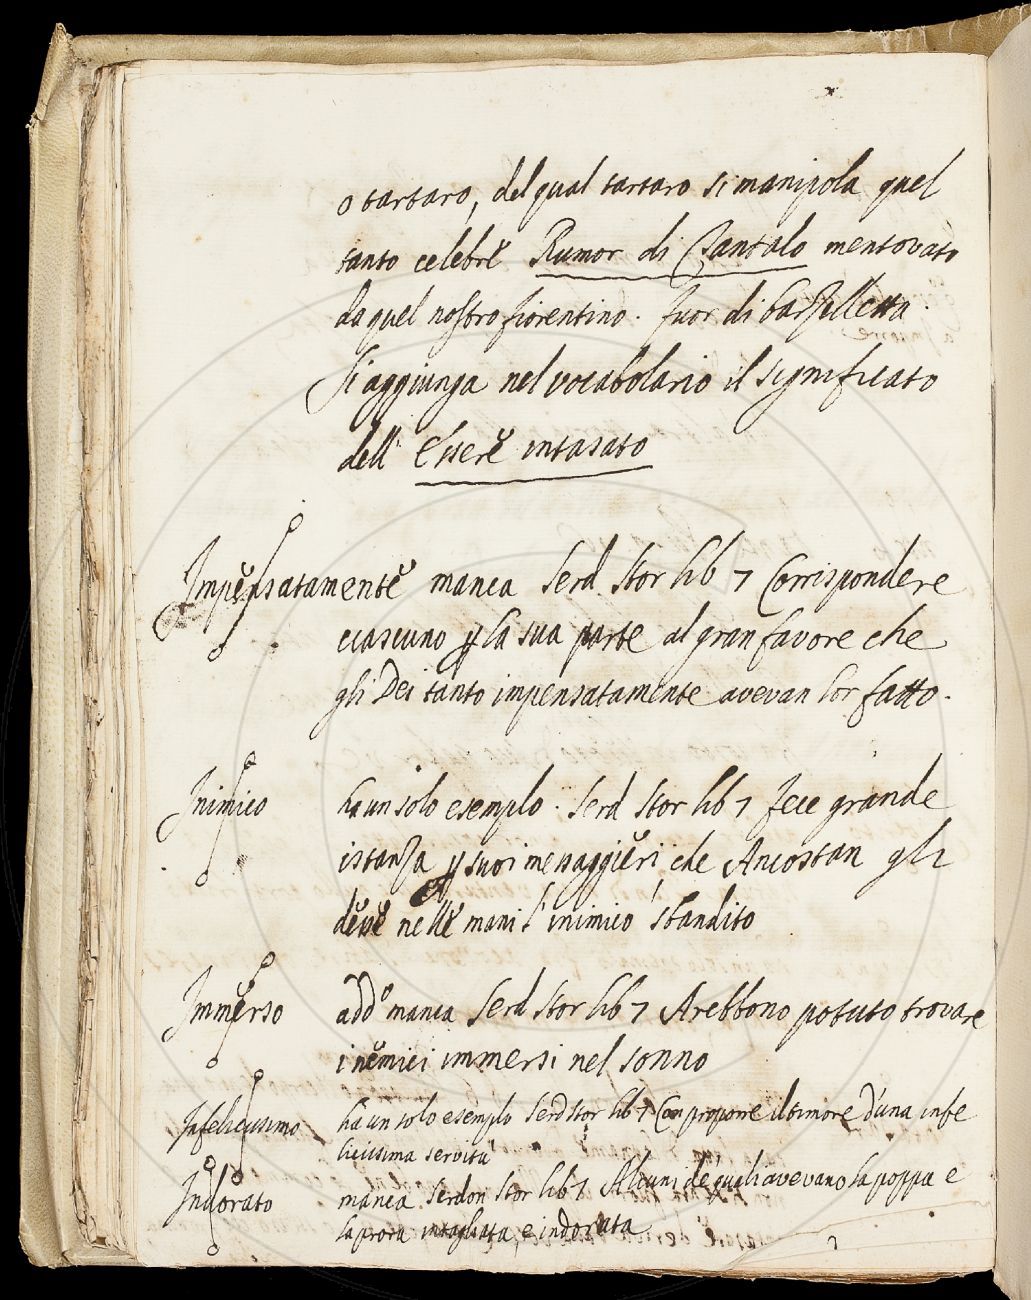 o tartaro, del qual tartaro si manipola quel
tanto celebre Rumor di Tantalo mentovato
da quel nostro fiorentino. fuor di barzelletta.
Si aggiunga nel vocabolario il significato
dell' Essere intasato
Impensatamente manca Serd. Stor lib 7 Corrispondere
ciascuno p la sua parte al gran favore che
gli Dei tanto impensatamente avevan lor fatto.
Inimico ha un solo esemplo. Serd Stor lib 7 fece grande
istanza p suoi messaggieri, che Ancostan gli
desse nelle mani l'inimico sbandito
Immerso add.o manca Serd Stor lib 7 Arebbono potuto trovare
i nemici immersi nel sonno
Infelicissimo ha un solo esemplo Serd Stor lib 7 Con proporre il timore d'una infe
licissima servitù
Indorato manca Serdon Stor lib 7 Alcuni de' quali avevano la poppa e
la prora intagliata, e indorata